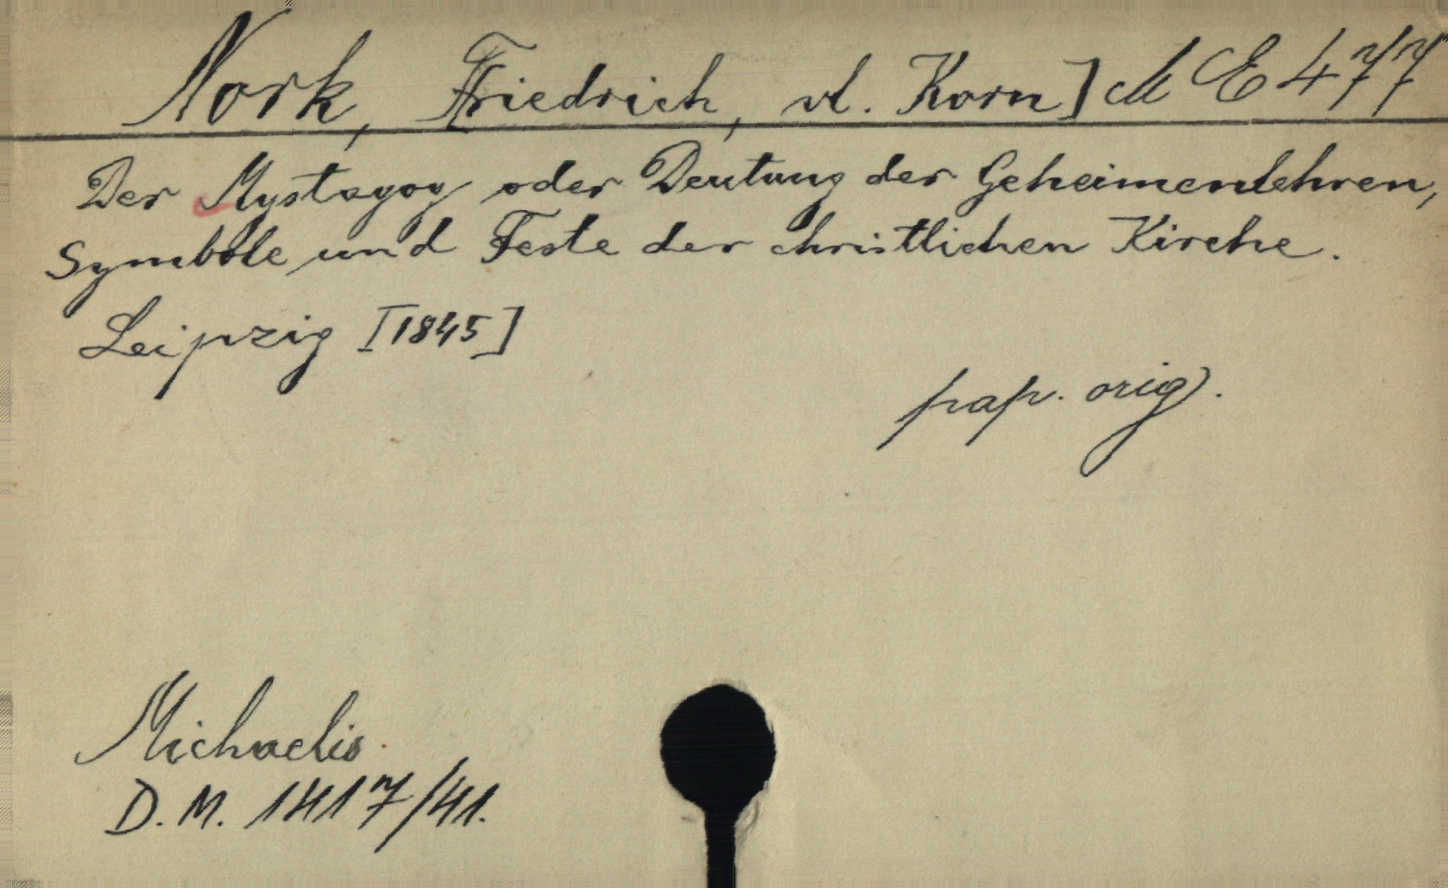 Nork, Friedrich, vl. Korn] M E 477
Der Mystagog oder Deutung der Geheimenlehren,
Symbole und Feste der christlichen Kirche.
Leipzig [1845]
pap. orig.
Michaelis.
D. M. 1417/41.